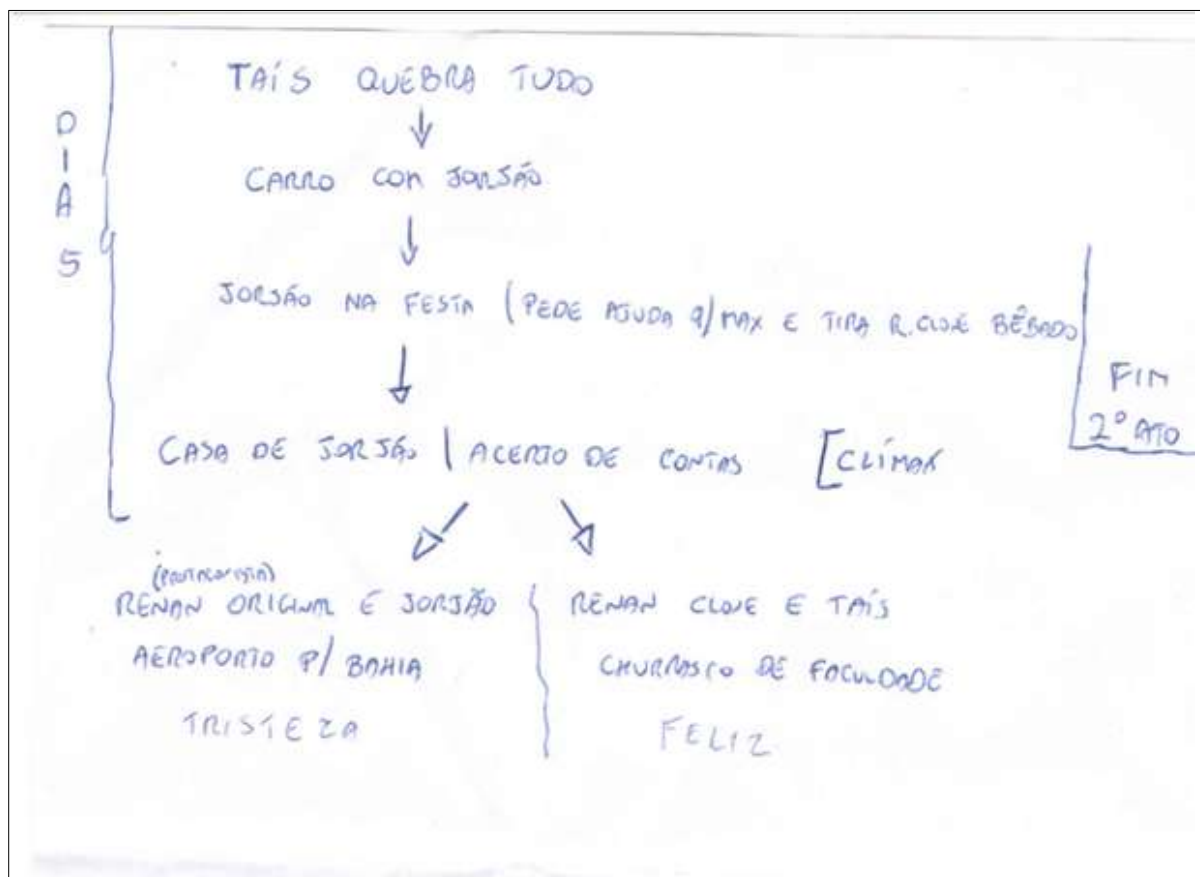 DIA 5
TAÍS QUEBRA TUDO
CARRO COM JORJÃO
JORJÃO NA FESTA (PEDE AJUDA P/ MAX E TIRA R. CLONE BÊBADO
FIM
2º ATO
CASA DE JORJÃO | ACERTO DE CONTAS [CLÍMAX
(PROTAGONISTA)
RENAN ORIGINAL E JORJÃO
AEROPORTO P/ BAHIA
TRISTEZA
RENAN CLONE E TAÍS
CHURRASCO DE FACULDADE
FELIZ